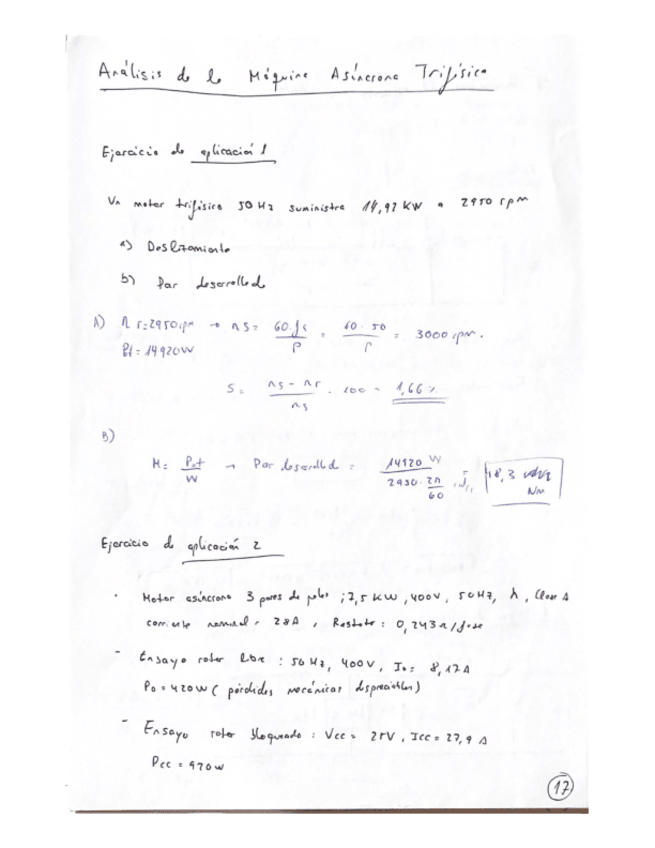 Análisis de la Máquina Asíncrona Trifásica
Ejercicio de aplicación 1
Un motor trifásico 50 Hz suministra 14,92 KW a 2950 rpm
a) Deslizamiento
b) Par desarrollado
A) nr=2950rpm → ns = 60·fs / P = 60·50 / P = 3000 rpm.
Pt = 14920W
S = ns - nr / ns · 100 = 1,66 %
B)
M = Pot / W → Par desarrollado = 14920 W / 2950 · 2π / 60 = 48,3 Nm
Ejercicio de aplicación 2
· Motor asíncrono 3 pares de polos ; 7,5 KW, 400V, 50Hz, λ, Clase A
corriente nominal = 28A, Restator: 0,243Ω/fase
- Ensayo rotor libre : 50 Hz, 400V, Io = 8,17A
Po = 420W ( pérdidas mecánicas despreciables)
- Ensayo rotor bloqueado : Vcc = 25V, Icc = 27,9 A
Pcc = 920w
17